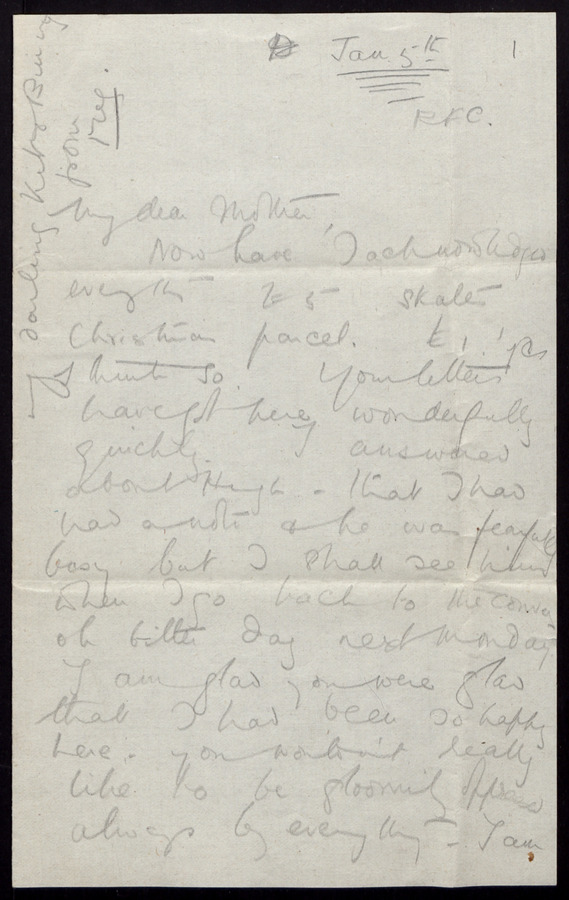 Jan 5th
1
R.F.C.
My dear Mother,
Now have I acknowledged
everything £5 skates
Christmas parcel. £1.! yes
I think so. Your letters
have got here wonderfully
quickly. I answered
about Hugh - that I had
had a note & he was fearfully
busy but I shall see him
when I go back to the
oh bitter day next Monday
I am glad you were glad
that I had been so happy
here. you wouldn't really
like to be gloomily
always by everything - I am
darling
from